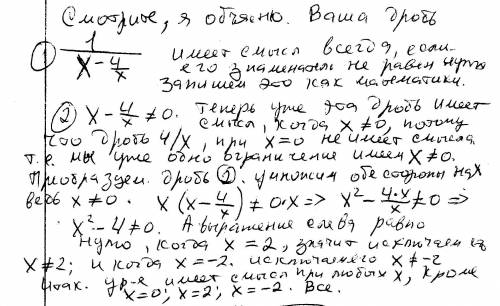 Смотрите, я объясню. Ваша дробь
① 1/(x - 4/x) имеет смысл всегда, если
его знаменатель не равен нулю
запишем это как математики.
② x - 4/x ≠ 0. Теперь уже эта дробь имеет
смысл, когда x ≠ 0, потому
что дробь 4/x, при x=0 не имеет смысла
т.е. мы уже одно ограничение имеем x ≠ 0.
Преобразуем дробь ①. умножим обе стороны на x
ведь x ≠ 0. x(x - 4/x) ≠ 0·x => x² - 4·x/x ≠ 0 =>
x² - 4 ≠ 0. А выражение слева равно
нулю, когда x = 2, значит исключаем его
x ≠ 2; и когда x = -2. исключаем его x ≠ -2
Итак. ур-е имеет смысл при любых x, кроме
x=0; x=2; x=-2. Все.